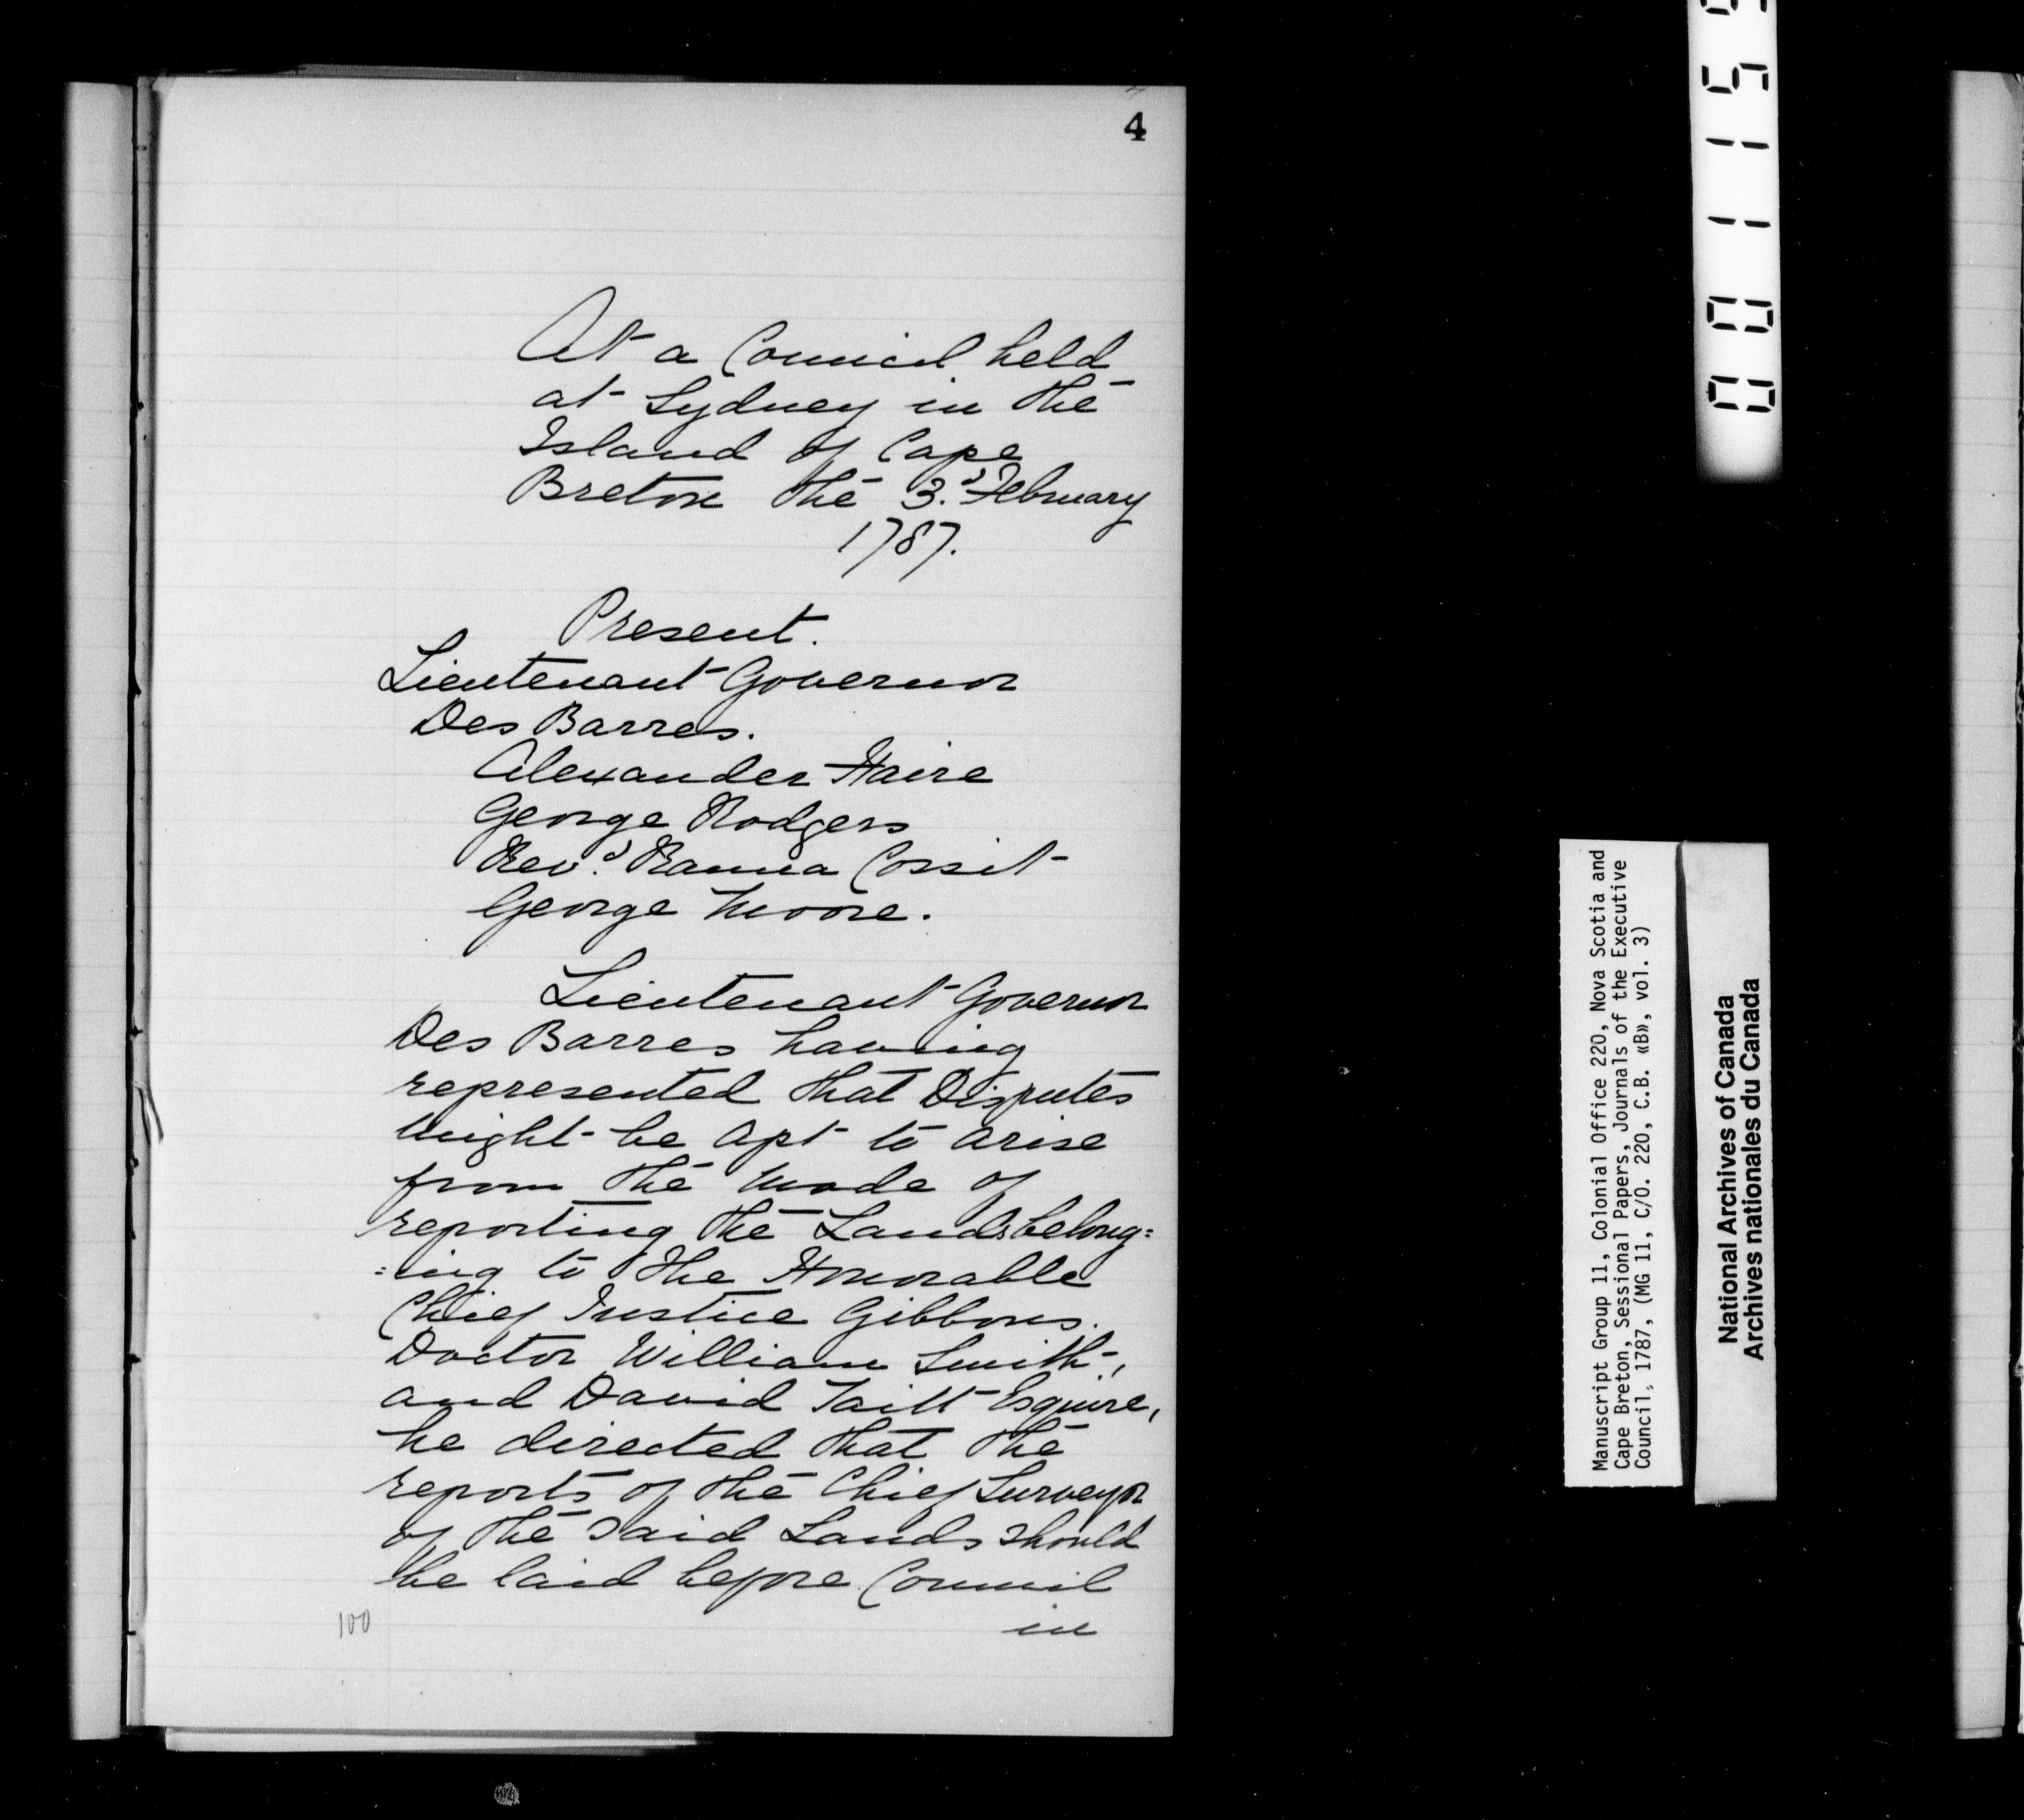 4
At a Council held
at Sydney in the
Island of Cape
Breton the 3.d February
1787.
Present.
Lieutenant Governor
Des Barres.
Alexander Haire
George Rodgers
Rev.d Ranna Cossit
George Moore.
Lieutenant Governor
Des Barres having
represented that Disputes
might be apt to arise
from the mode of
reporting the Lands belong=
=ing to the Honorable
Chief Justice Gibbons.
Doctor William Smith,
and David Taitt Esquire,
he directed that the
reports of the Chief Surveyor
of the said Lands should
be laid before Council
in
100
Manuscript Group 11, Colonial Office 220, Nova Scotia and
Cape Breton, Sessional Papers, Journals of the Executive
Council, 1787, (MG 11, C/O. 220, C.B. «B», vol. 3)
National Archives of Canada
Archives nationales du Canada